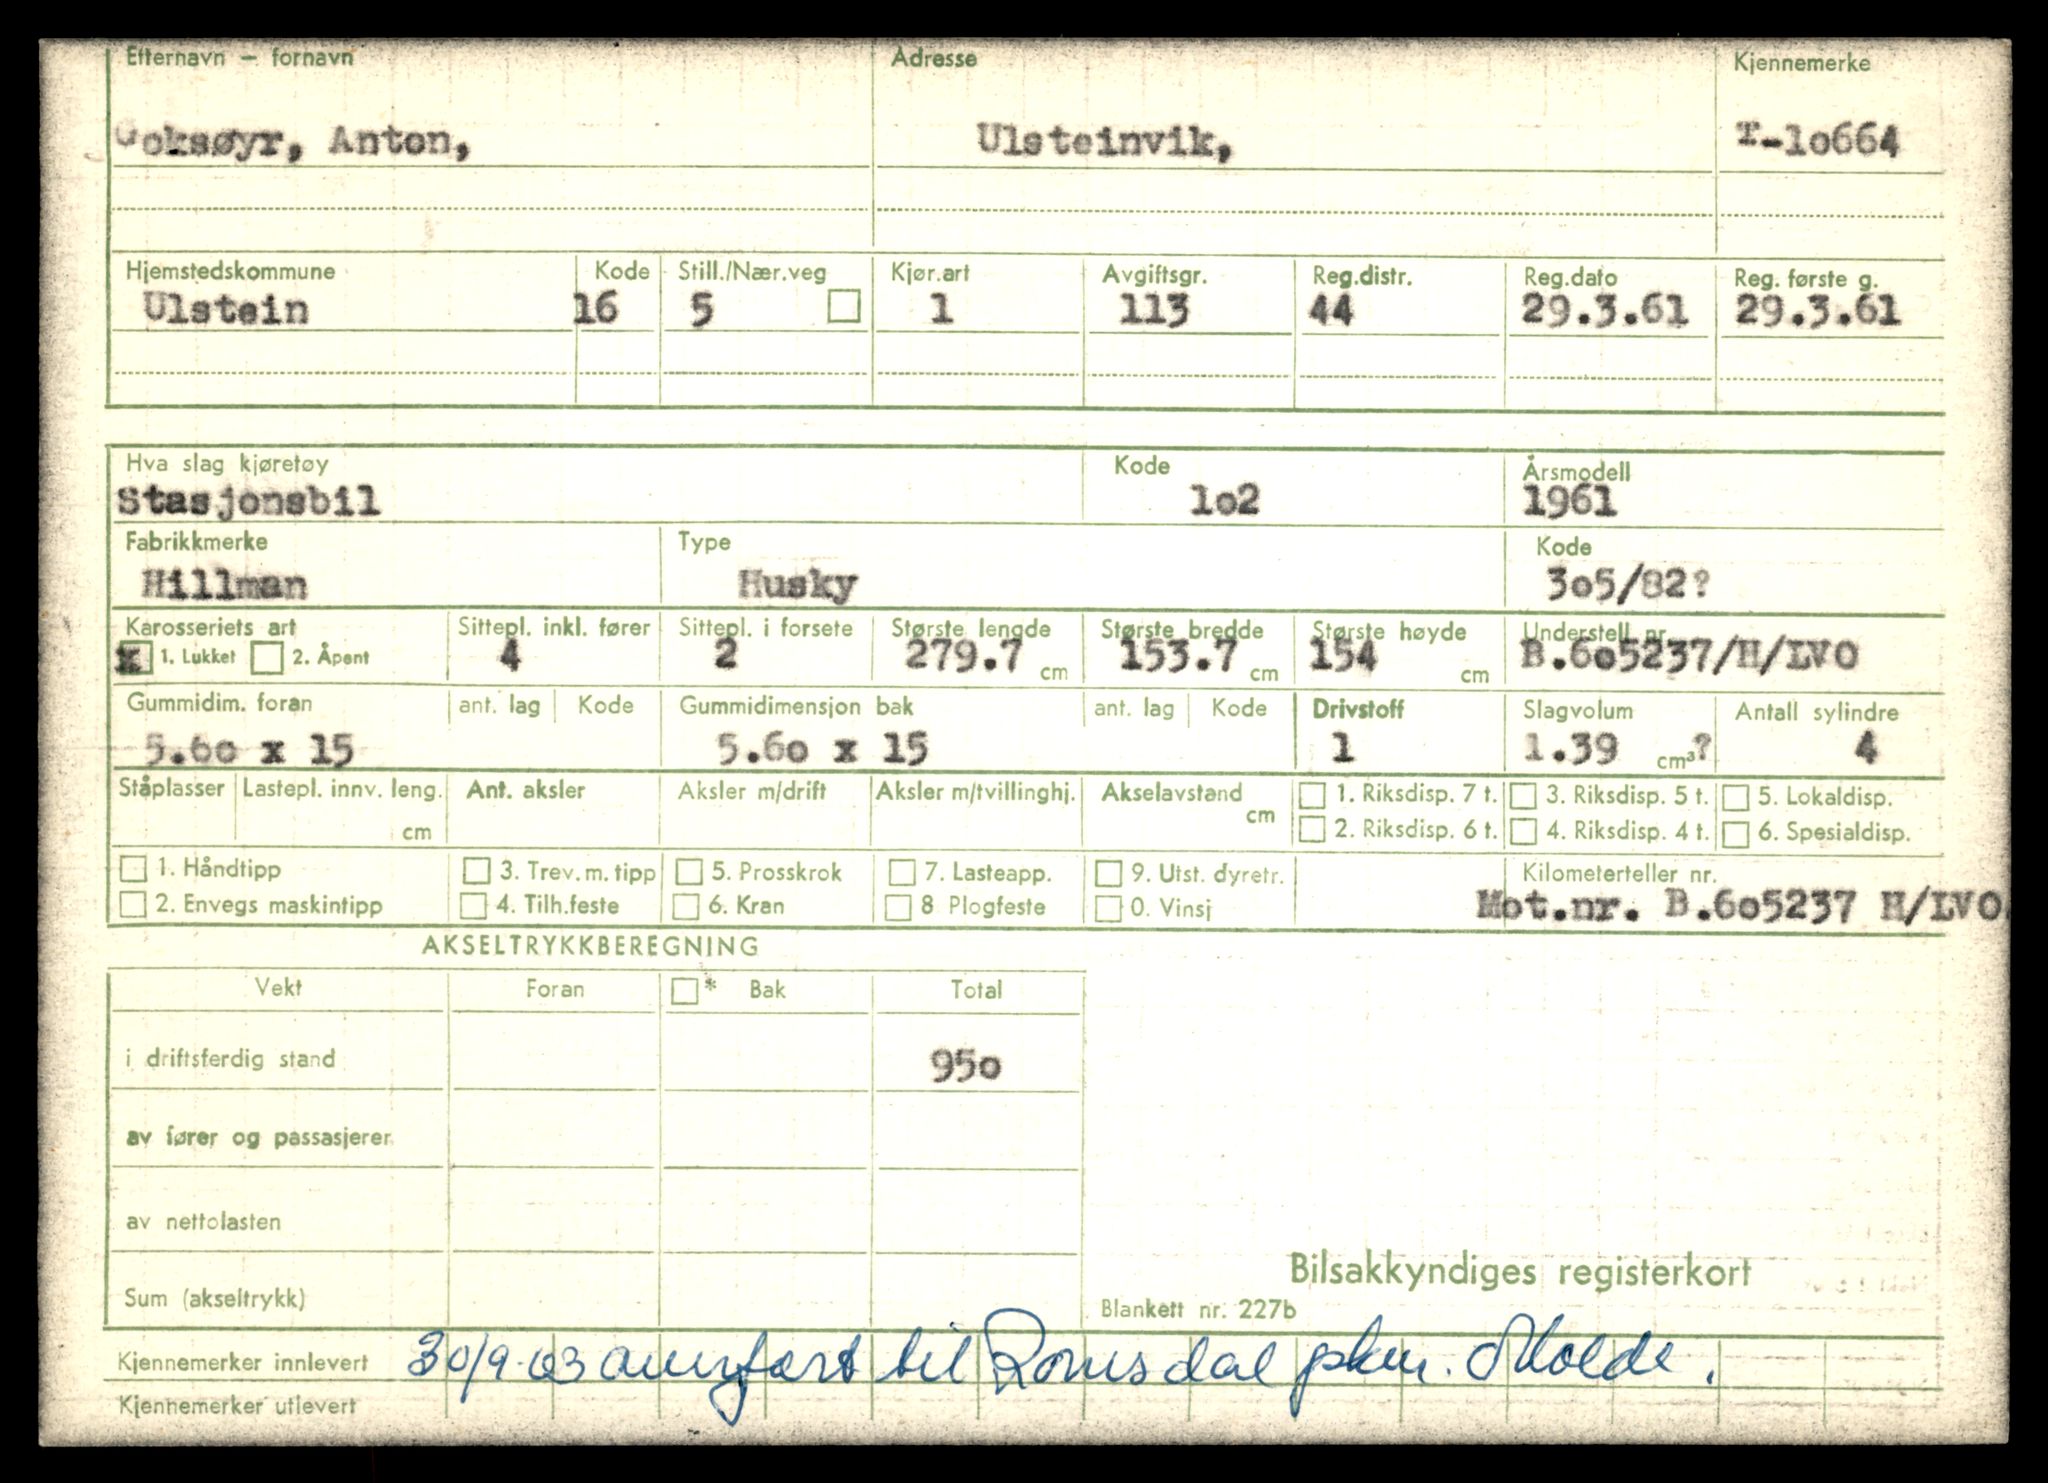 Efternavn – fornavn Adresse Kjennemerke
Goksøyr, Anton, Ulsteinvik, T-10664
Hjemstedskommune Kode Still./Nær.veg Kjør.art Avgiftsgr. Reg.distr. Reg.dato Reg. første g.
Ulstein 16 5 1 113 44 29.3.61 29.3.61
Hva slag kjøretøy Kode Årsmodell
Stasjonsbil 1o2 1961
Fabrikkmerke Type Kode
Hillman Husky 3o5/82?
Karosseriets art Sittepl. inkl. fører Sittepl. i forsete Største lengde Største bredde Største høyde Understell nr.
x 1. Lukket 2. Åpent 4 2 279.7 cm 153.7 cm 154 cm B.6o5237/H/LVO
Gummidim. foran ant. lag Kode Gummidimensjon bak ant. lag Kode Drivstoff Slagvolum Antall sylindre
5.6o x 15 5.6o x 15 1 1.39 cm³? 4
Ståplasser Lastepl. innv. leng. Ant. aksler Aksler m/drift Aksler m/tvillinghj. Akselavstand 1. Riksdisp. 7 t. 3. Riksdisp. 5 t. 5. Lokaldisp.
cm cm 2. Riksdisp. 6 t. 4. Riksdisp. 4 t. 6. Spesialdisp.
1. Håndtipp 3. Trev. m. tipp 5. Prosskrok 7. Lasteapp. 9. Utst. dyretr. Kilometerteller nr.
2. Envegs maskintipp 4. Tilh.feste 6. Kran 8 Plogfeste 0. Vinsj Mot.nr. B.6o5237 H/LVO
AKSELTRYKKBEREGNING
Vekt Foran * Bak Total
i driftsferdig stand 95o
av fører og passasjerer
av nettolasten
Bilsakkyndiges registerkort
Sum (akseltrykk) Blankett nr. 227b
Kjennemerker innlevert 30/9-63 til Romsdal Molde.
Kjennemerker utlevert